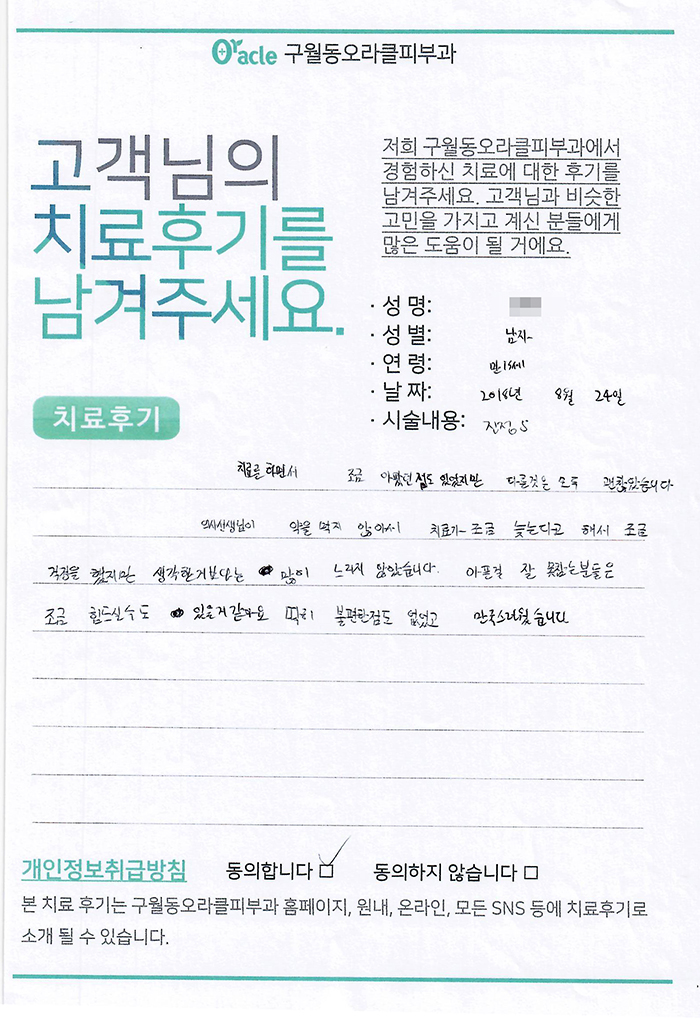 Oracle 구월동오라클피부과
고객님의
치료후기를
남겨주세요.
저희 구월동오라클피부과에서
경험하신 치료에 대한 후기를
남겨주세요. 고객님과 비슷한
고민을 가지고 계신 분들에게
많은 도움이 될 거에요.
· 성 명:
· 성 별: 남자
· 연 령: 만15세
· 날 짜: 2018년 8월 24일
· 시술내용: 진정 5
치료후기
치료를 하면서 조금 아팠던 점도 있었지만 다른것은 모두 괜찮았습니다
의사선생님이 약을 먹지 않아서 치료가 조금 늦는다고 해서 조금
걱정을 했지만 생각한거보다는 많이 느리지 않았습니다. 아픈걸 잘 못참는분들은
조금 힘드실수도 있을거같아요 딱히 불편한점도 없었고 만족스러웠습니다
개인정보취급방침 동의합니다 동의하지 않습니다
본 치료 후기는 구월동오라클피부과 홈페이지, 원내, 온라인, 모든 SNS 등에 치료후기로
소개 될 수 있습니다.